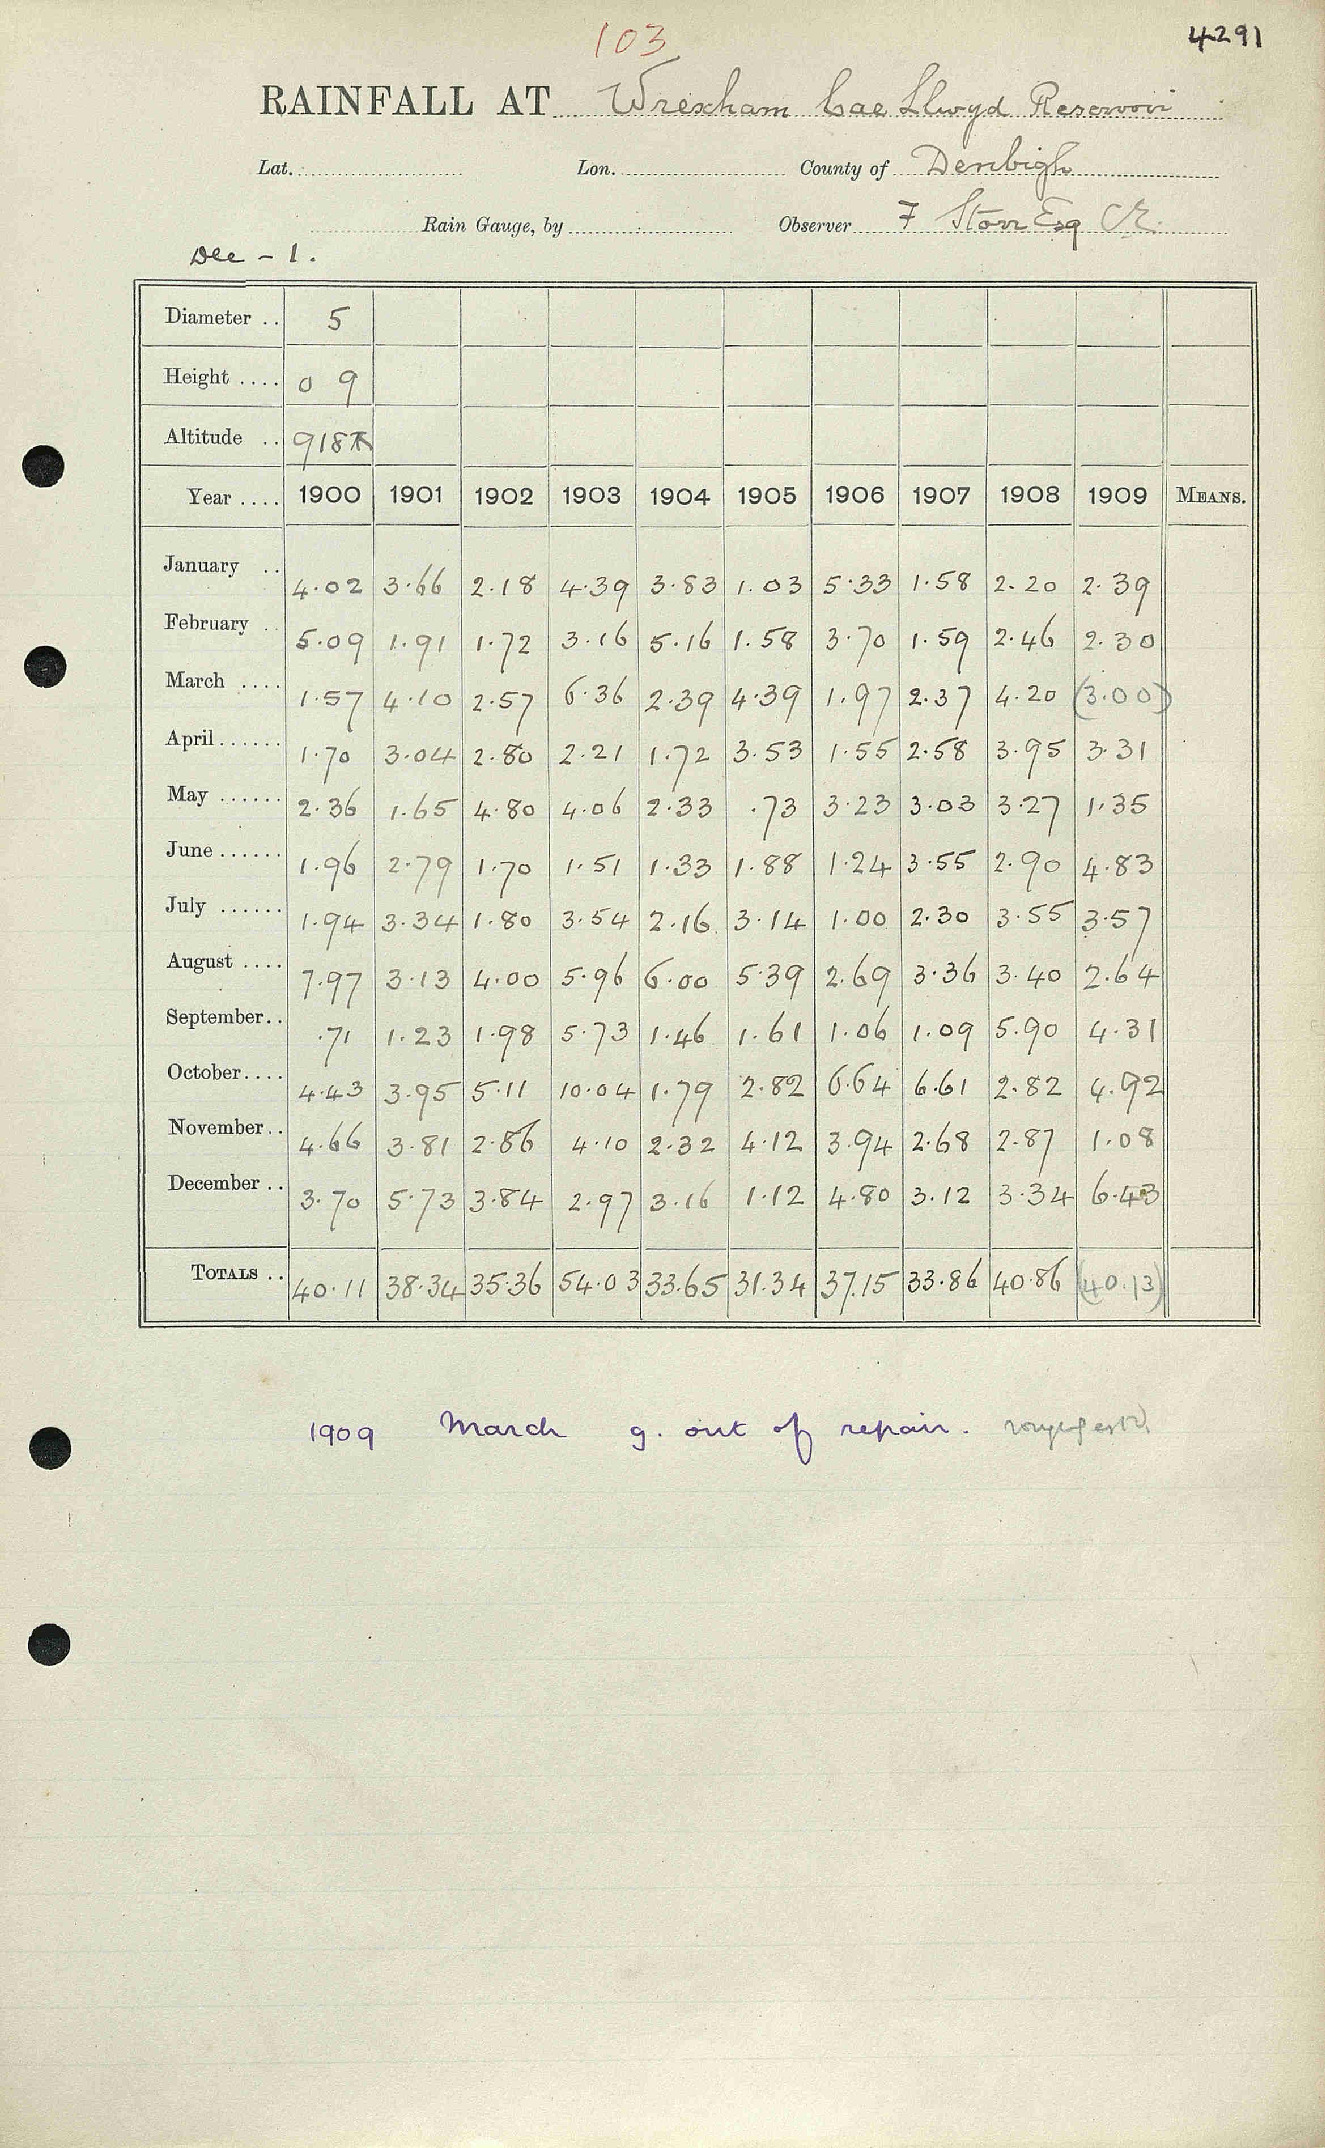 103
4291
RAINFALL AT Wrexham Cae Llwyd Reservoir
Lat. Lon. County of Denbigh
Rain Gauge, by Observer F Storr Esq C.E.
Dec - 1.
Diameter .. 5
Height .... 0 9
Altitude .. 918
Year .... 1900 1901 1902 1903 1904 1905 1906 1907 1908 1909 MEANS.
January .. 4.02 3.66 2.18 4.39 3.83 1.03 5.33 1.58 2.20 2.39
February .. 5.09 1.91 1.72 3.16 5.16 1.58 3.70 1.59 2.46 2.30
March .... 1.57 4.10 2.57 6.36 2.39 4.39 1.97 2.37 4.20 (3.00)
April...... 1.70 3.04 2.80 2.21 1.72 3.53 1.55 2.58 3.95 3.31
May ...... 2.36 1.65 4.80 4.06 2.33 .73 3.23 3.03 3.27 1.35
June...... 1.96 2.79 1.70 1.51 1.33 1.88 1.24 3.55 2.90 4.83
July ...... 1.94 3.34 1.80 3.54 2.16 3.14 1.00 2.30 3.55 3.57
August .... 7.97 3.13 4.00 5.96 6.00 5.39 2.69 3.36 3.40 2.64
September.. .71 1.23 1.98 5.73 1.46 1.61 1.06 1.09 5.90 4.31
October.... 4.43 3.95 5.11 10.04 1.79 2.82 6.64 6.61 2.82 4.92
November.. 4.66 3.81 2.86 4.10 2.32 4.12 3.94 2.68 2.87 1.08
December .. 3.70 5.73 3.84 2.97 3.16 1.12 4.80 3.12 3.34 6.43
TOTALS .. 40.11 38.34 35.36 54.03 33.65 31.34 37.15 33.86 40.86 (40.13)
1909 March g. out of repair.